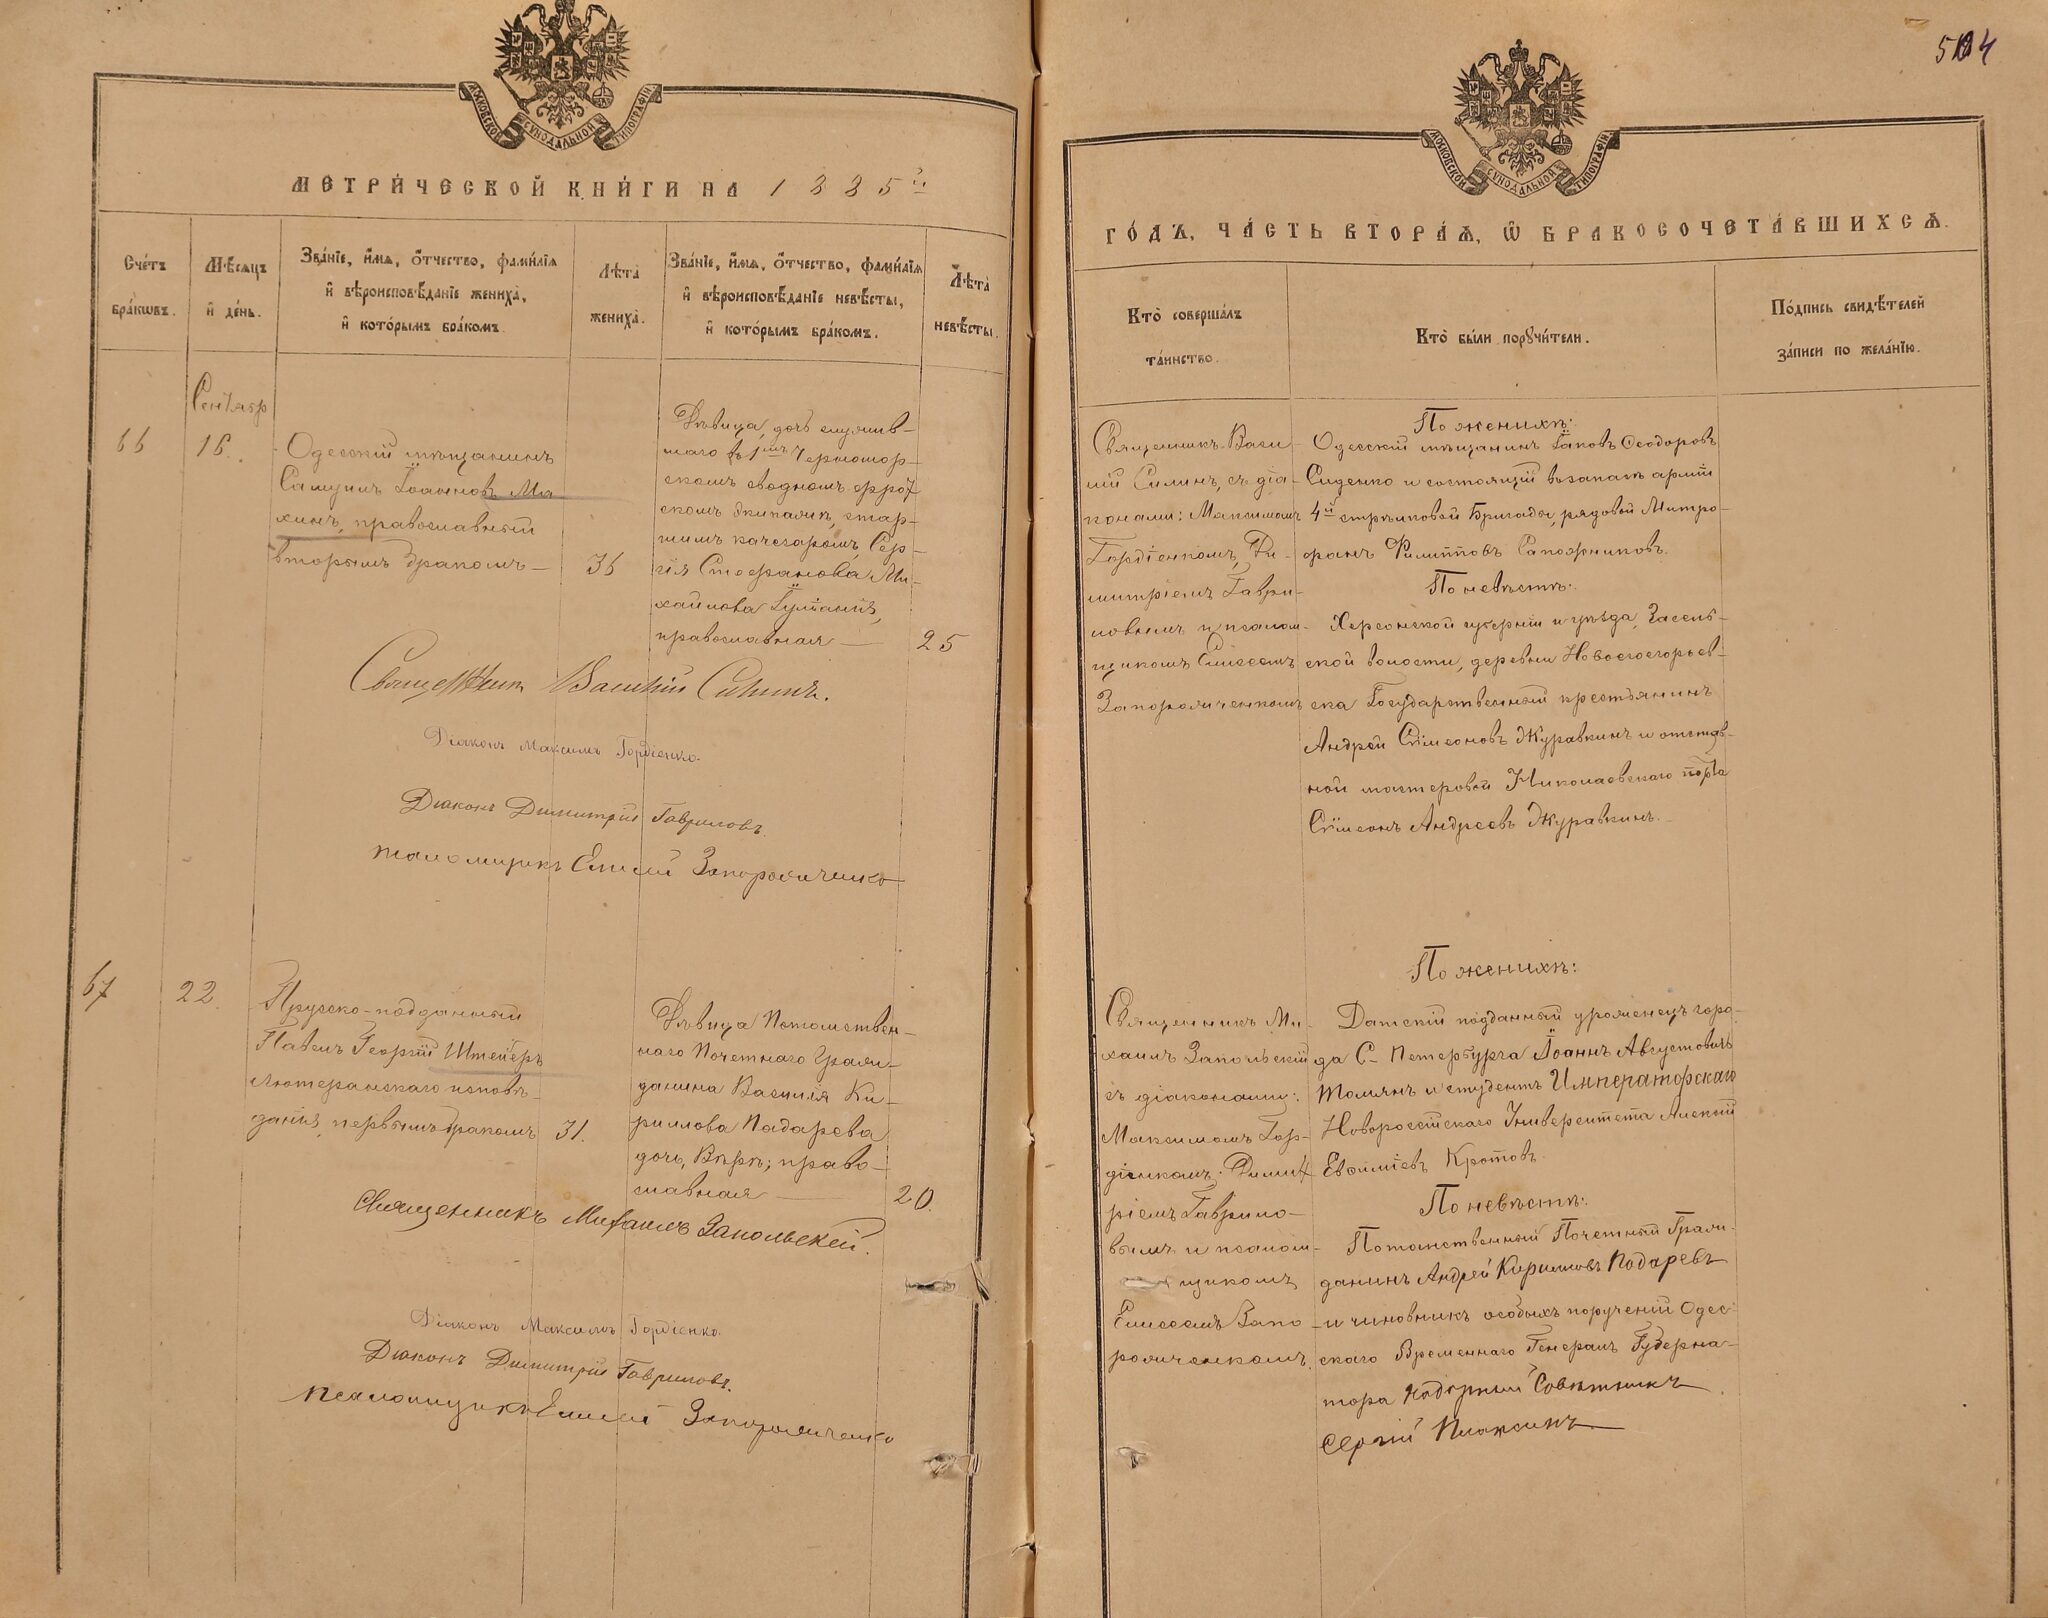 5124
МОСКОВСКОЙ СѴНОДАЛЬНОЙ ТИПОГРАФІИ
МЕТРИ́ЧЕСКОЙ КНИ́ГИ НА 1885й
Сче́тъ бра́кωвъ.
Мѣ́сяцъ и҆ де́нь.
Зва́нїе, и҆́мя, ѻ҆́тчество, фами́лїя
и҆ вѣроисповѣ́данїе жениха̀,
и҆ кото́рымъ бра́комъ.
Лѣ́та жениха̀.
Зва́нїе, и҆́мя, ѻ҆́тчество, фами́лїя
и҆ вѣроисповѣ́данїе невѣ́сты,
и҆ кото́рымъ бра́комъ.
Лѣ́та невѣ́сты.
Сентябр
66
16.
Одесскій мѣщанинъ
Самуилъ Іоанновъ Ма
хинъ, православный
вторымъ бракомъ —
36
Дѣвица, дочь служив-
шаго въ 1мъ Черномор-
скомъ сводномъ флот
скомъ экипажѣ, стар-
шимъ качегаромъ, Сер-
гія Стефанова Ми-
хайлова
православная —
25
Священникъ Василій Силинъ.
Діаконъ Максимъ Гордіенко.
Діаконъ Димитрій Гавриловъ.
псаломщикъ Елисей Запорожченко
67
22.
Прусско-подданный
Павелъ Георгій Штейгеръ
лютеранскаго исповѣ-
данія, первымъ бракомъ
31.
Дѣвица Потомствен-
наго Почетнаго Граж-
данина Василія Ки-
риллова Падарева
дочь, Вѣра; право-
славная —
20.
Священникъ Михаилъ Запольскій.
Діаконъ Максимъ Гордіенко.
Діаконъ Димитрій Гавриловъ.
псаломщикъ Елисей Запорожченко
МОСКОВСКОЙ СѴНОДАЛЬНОЙ ТИПОГРАФІИ
ГО́ДЪ, ЧА́СТЬ ВТОРА́Я, Ѡ҆ БРАКОСОЧЕТА́ВШИХСЯ.
Кто̀ соверша́лъ
та́инство.
Кто̀ бы́ли порꙋчи́тели.
По́дпись свидѣ́телей
за́писи по жела́нїю.
Священникъ Васи-
лій Силинъ, съ діа-
конами: Максимомъ
Гордіенкомъ, Ди-
митріемъ Гаври-
ловымъ и псалом-
щикомъ Елисеемъ
Запорожченкомъ
По женихѣ:
Одесскій мѣщанинъ Іаковъ Ѳеодоровъ
Сиденко и состоящій въ запасѣ арміи
4й стрѣлковой Бригады, рядовой Митро-
фанъ Филипповъ Сапожниковъ.
По невѣстѣ:
Херсонской губерніи и уѣзда, Засель-
ской волости, деревни Новоегорьев-
ска Государственный крестьянинъ
Андрей Сѵмеоновъ Журавкинъ и отстав-
ной мастеровой Николаевскаго порта
Сѵмеонъ Андреевъ Журавкинъ.
Священникъ Ми-
хаилъ Запольскій
съ діаконами:
Максимомъ Гор-
діенкомъ, Димит
ріемъ Гаврило-
вымъ и псалом-
щикомъ
Елисеемъ Запо-
рожченкомъ.
По женихѣ:
Датскій подданный уроженецъ горо-
да С-Петербурга Іоаннъ Августовичъ
Томлянъ и студентъ Императорскаго
Новороссійскаго Университета Алексій
Евѳиміевъ Кротовъ.
По невѣстѣ:
Потомственный Почетный Граж-
данинъ Андрей Кирилловъ Подаревъ
и чиновникъ особыхъ порученій Одес-
скаго Временнаго Генералъ Губерна-
тора Надворный Совѣтникъ
Сергій Плаксинъ